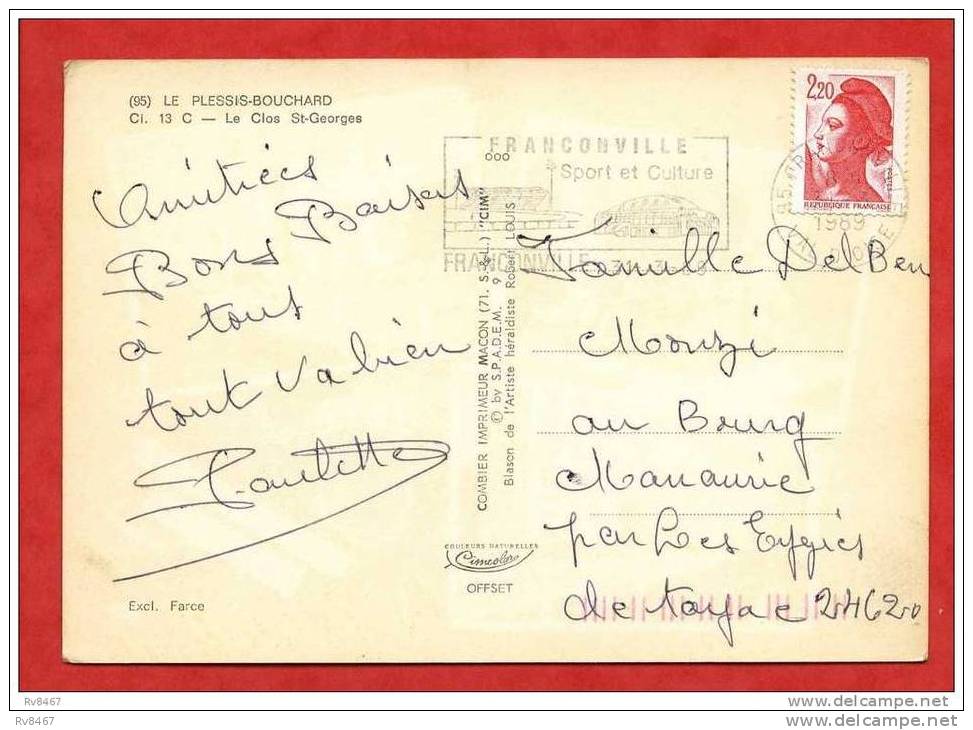 (95) LE PLESSIS-BOUCHARD
Ci. 13 C — Le Clos St-Georges
Amitiées
Bons Baisers
à tous
tout va bien
Paulette
Excl. Farce
FRANCONVILLE
Sport et Culture
FRANCONVILLE
2,20
REPUBLIQUE FRANCAISE
1989
COMBIER IMPRIMEUR MACON (71. S.-&-L.) "CIM"
© by S.P.A.D.E.M. 9
Blason de l'Artiste héraldiste Robert LOUIS
COULEURS NATURELLES
Cimcolor
OFFSET
Famille DelBen
Monzi
au Bourg
Manaurie
par Les Eyzies
de tayac 24620
Rv8467
Rv8467
www.delcampe.net